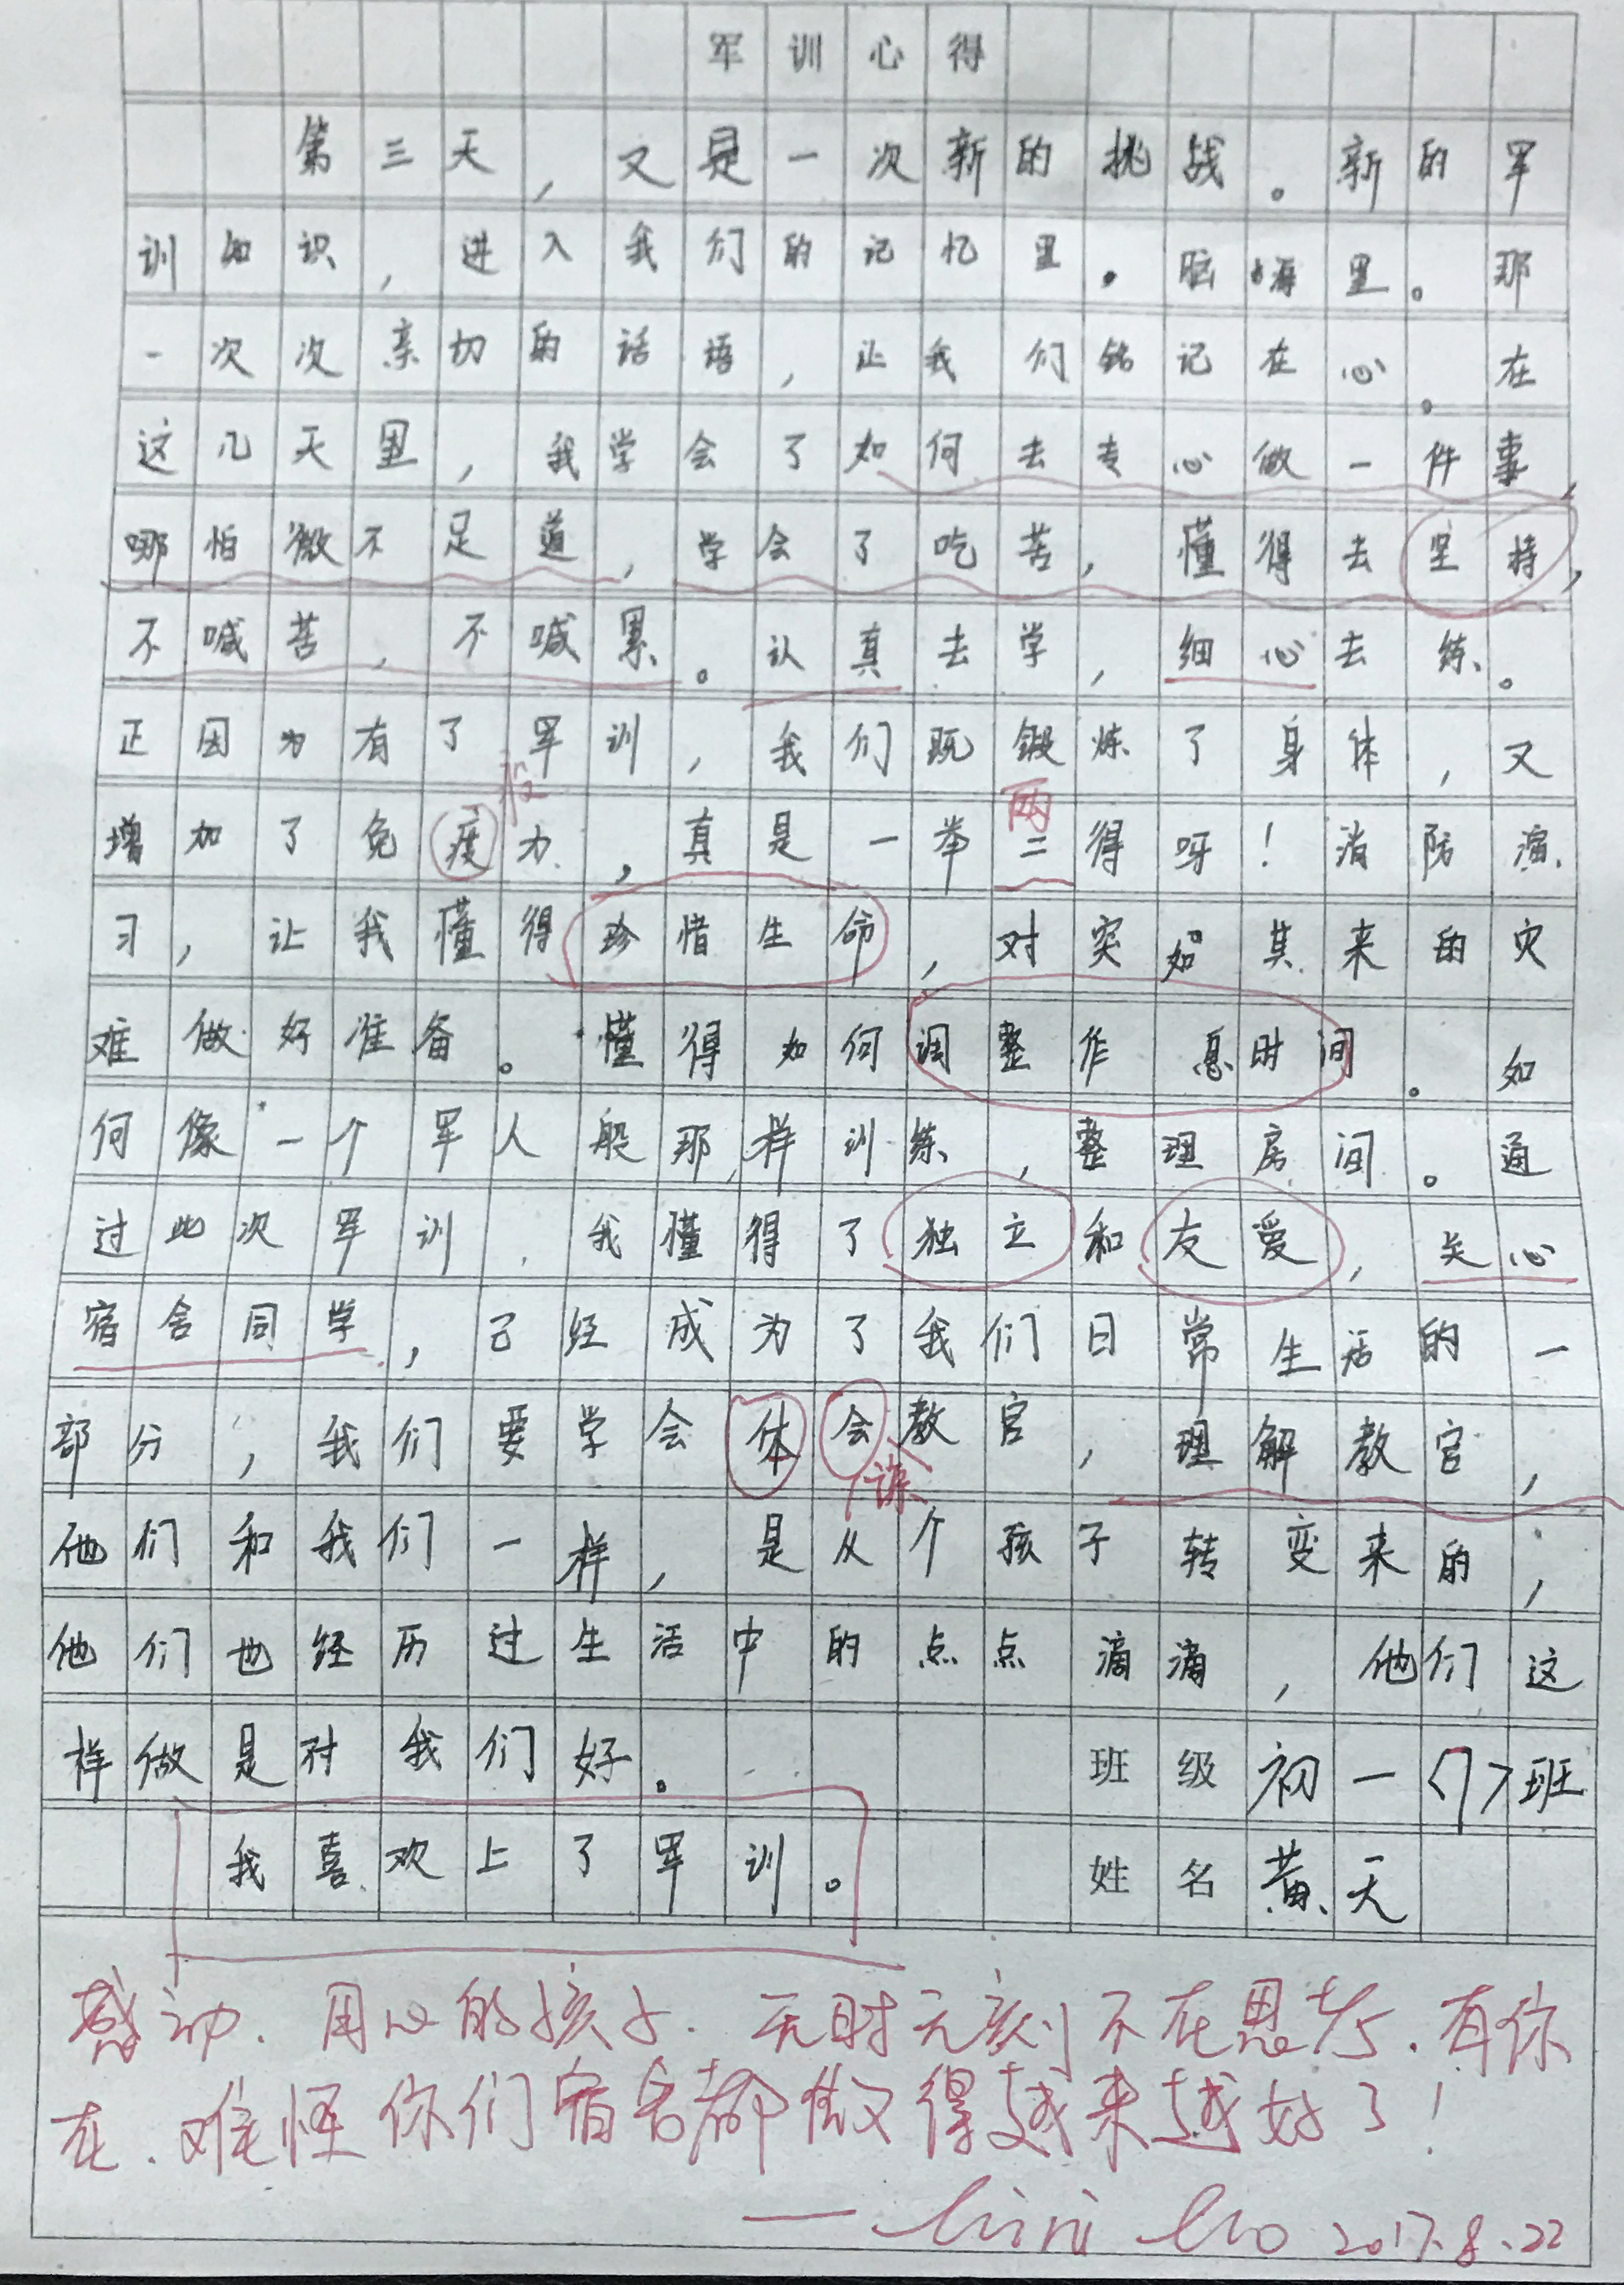 军训心得
第三天，又是一次新的挑战。新的军
训知识，进入我们的记忆里。脑海里。那
一次次亲切的话语，让我们铭记在心。在
这几天里，我学会了如何去专心做一件事，
哪怕微不足道，学会了吃苦，懂得去坚持，
不喊苦，不喊累。认真去学，细心去练。
正因为有了军训，我们既锻炼了身体，又
役 两
增加了免疫力，真是一举二得呀！消防演
习，让我懂得珍惜生命，对突如其来的灾
难做好准备。懂得如何调整作息时间。如
何像一个军人般那样训练，整理房间。通
过此次军训，我懂得了独立和友爱，关心
宿舍同学，己经成为了我们日常生活的一
部分，我们要学会体会教官，理解教官，
谅
他们和我们一样，是从个孩子转变来的，
他们也经历过生活中的点点滴滴，他们这
样做是对我们好。 班级 初一〈7〉班
我喜欢上了军训。 姓名 黄天
感动、用心的孩子、无时无刻不在思考、有你
在、难怪你们宿舍都做得越来越好了！
2017.8.22